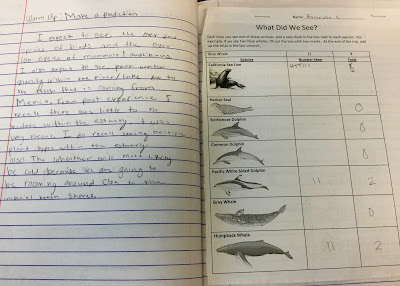 Warm Up: Make a prediction
I expect to see the over 200
species of birds and the over
100 species of
I also expect to see poor water
quality within the river/lake due to
the trash that is coming from
Mexico. From past experience, I
recall there was little to no
within the estuary. It was
very recent. I do recall seeing multiple
plant types within the estuary
also. The weather will most likely
be cold because we are going to
be roaming around close to the
shores.
Name:
What Did We See?
Each time you see one of these animals, add a tally mark in the box next to each species. For
example, if we see two blue whales, fill out the box with two marks. At the end of the trip, add
up the total in the last column.
Blue Whale II 2
Species Number Seen Total
California Sea Lion 8
Harbor Seal 0
Bottlenose Dolphin 0
Common Dolphin 0
Pacific White-Sided Dolphin 11 2
Gray Whale 0
Humpback Whale 11 2